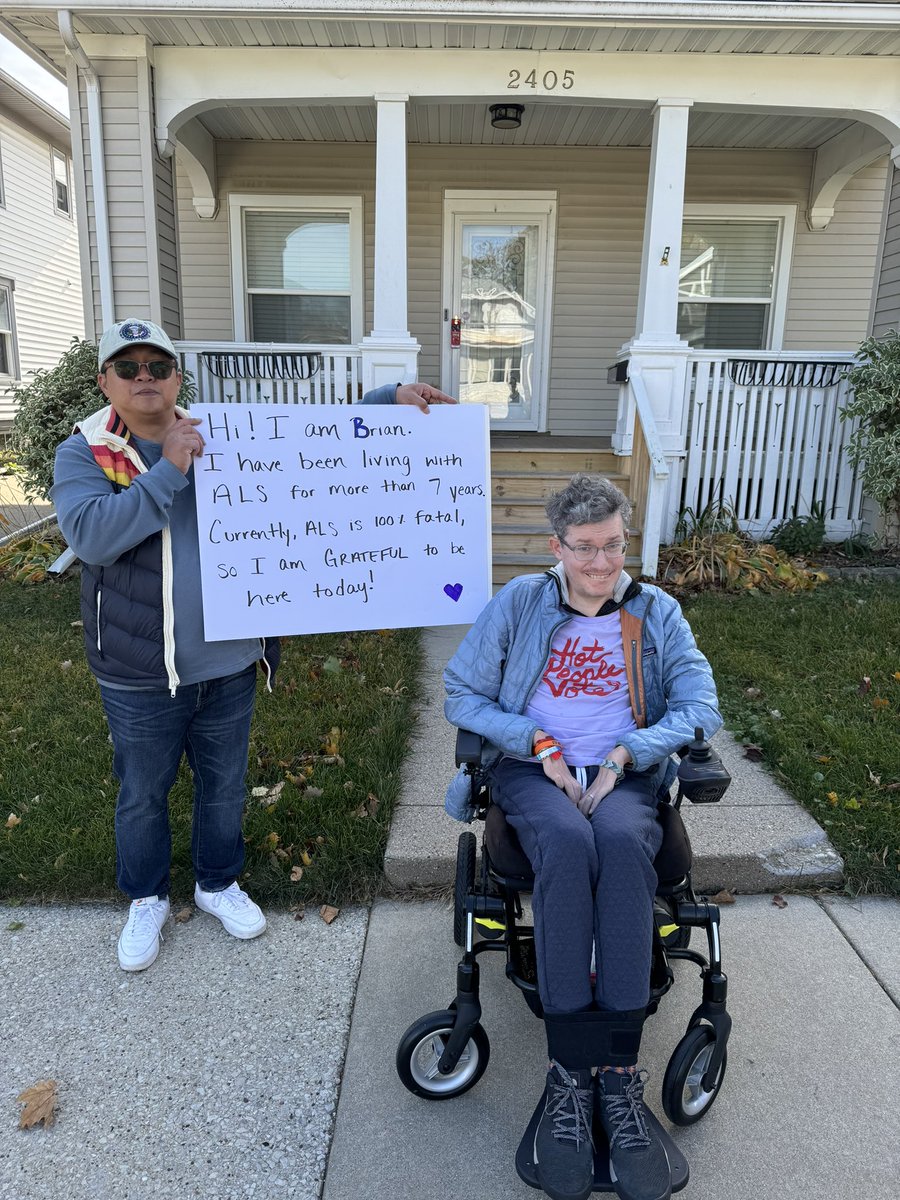 2405
Hi! I am Brian.
I have been living with
ALS for more than 7 years.
Currently, ALS is 100% fatal,
so I am GRATEFUL to be
here today!
Hot
People
Vote